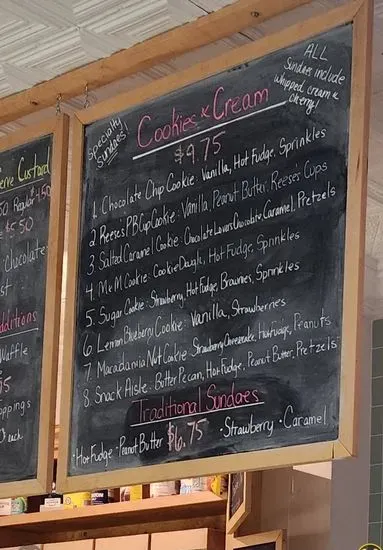 Specialty
Sundaes
Cookies & Cream
$9.75
ALL
Sundaes include
whipped cream &
cherry!
1. Chocolate Chip Cookie: Vanilla, Hot Fudge, Sprinkles
2. Reese's PB Cup Cookie: Vanilla, Peanut Butter, Reese's Cups
3. Salted Caramel Cookie: Chocolate Lovers Chocolate, Caramel, Pretzels
4. M&M Cookie: Cookie Dough, Hot Fudge, Sprinkles
5. Sugar Cookie: Strawberry, Hot Fudge, Brownies, Sprinkles
6. Lemon Blueberry Cookie: Vanilla, Strawberries
7. Macadamia Nut Cookie: Strawberry Cheesecake, Hot Fudge, Peanuts
8. Snack Aisle: Butter Pecan, Hot Fudge, Peanut Butter, Pretzels
Traditional Sundaes
• Hot Fudge • Peanut Butter $6.75 • Strawberry • Caramel
erve Custard
50 Regular 4.50
5.50
Chocolate
st
dditions
Waffle
oppings
each